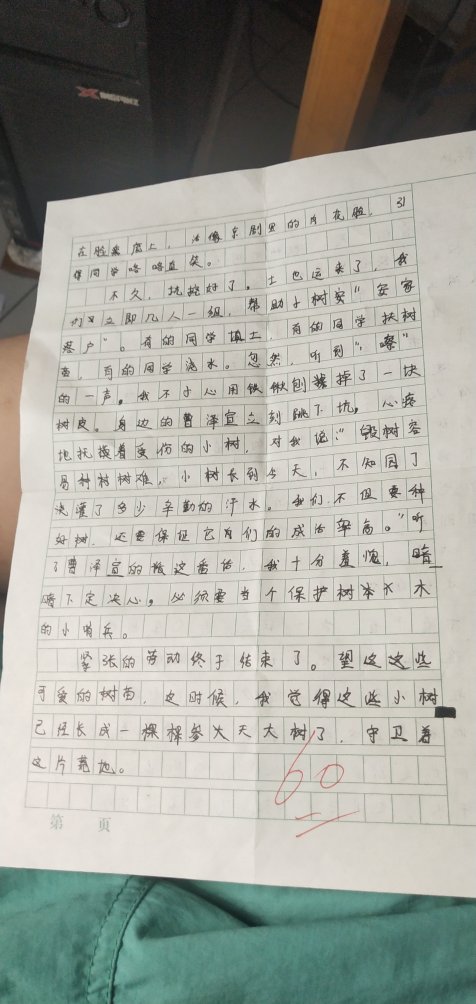 在脸蛋上，活像京剧里的月花脸，引
得同学咯咯直笑。
不久，坑挖好了。土也运来了，我
们又立即几人一组，帮助小树安"安家
落户"。有的同学填土，有的同学扶树
苗，有的同学浇水。忽然，听到"嚓"
的一声。我不小心用铁锹刨掉了一块
树皮。身边的曹泽宣立刻跳下坑，心疼
地抚摸着受伤的小树，对我说："毁树容
易种树难，小树长到今天，不知园丁
浇灌了多少辛勤的汗水。我们不但要种
好树，还要保证它们的成活率高。"听
了曹泽宣的这番话，我十分羞愧，暗
暗下定决心，必须要当个保护树木
的小哨兵。
紧张的劳动终于结束了。望这这些
可爱的树苗，这时候，我觉得这些小树
已经长成一棵棵参天大树了，守卫着
这片荒地。
60
第 页